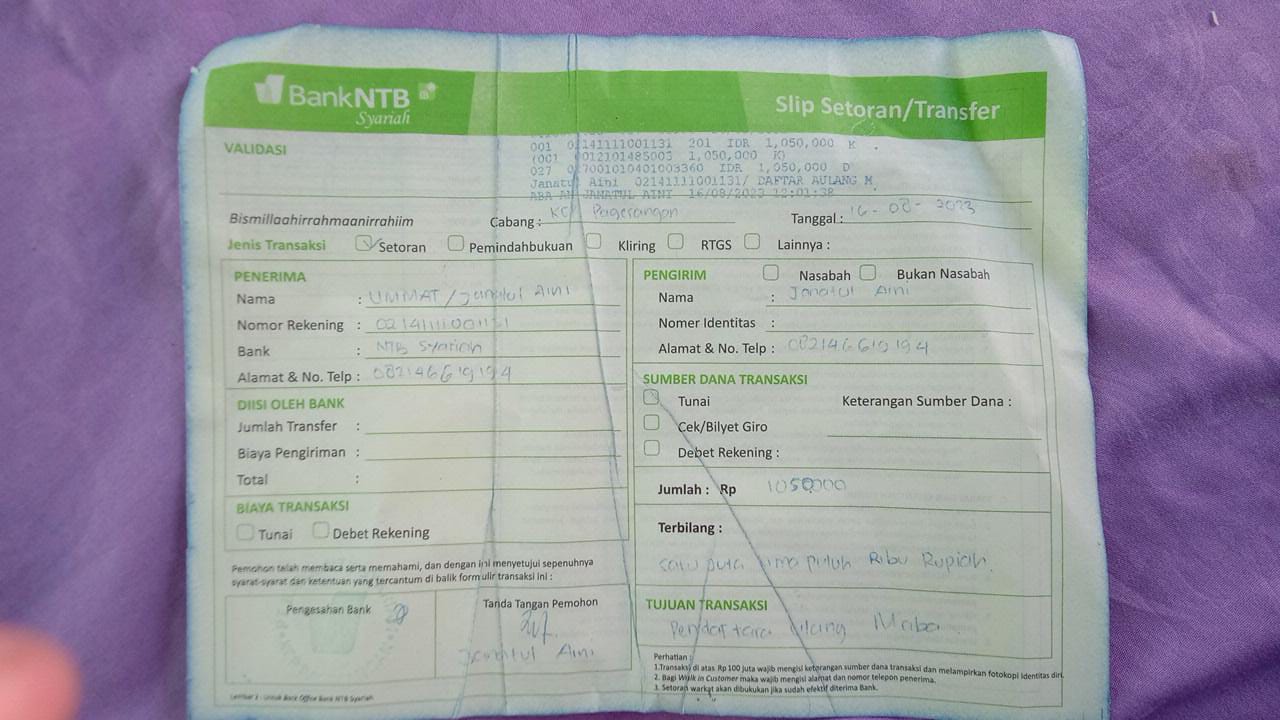 BankNTB
Syariah
Slip Setoran/Transfer
VALIDASI
001 02141111001131 201 IDR 1,050,000 K
(001 0012101485003 1,050,000 K)
027 027001010401003360 IDR 1,050,000 D
Janatul Aini 02141111001131/ DAFTAR AULANG M
JANATUL AINI 16/08/2023 12:01:38
Bismillaahirrahmaanirrahiim
Cabang : Pagesangan
Tanggal : 16-08-2023
Jenis Transaksi Setoran Pemindahbukuan Kliring RTGS Lainnya :
PENERIMA
Nama : UMMAT / Janatul Aini
Nomor Rekening : 02141111001131
Bank : NTB Syariah
Alamat & No. Telp : 082146619194
DIISI OLEH BANK
Jumlah Transfer :
Biaya Pengiriman :
Total :
BIAYA TRANSAKSI
Tunai Debet Rekening
Pemohon telah membaca serta memahami, dan dengan ini menyetujui sepenuhnya
syarat-syarat dan ketentuan yang tercantum di balik formulir transaksi ini :
Pengesahan Bank
Tanda Tangan Pemohon
Janatul Aini
Lembar 2 : Untuk Back Office Bank NTB Syariah
PENGIRIM Nasabah Bukan Nasabah
Nama : Janatul Aini
Nomer Identitas :
Alamat & No. Telp : 082146619194
SUMBER DANA TRANSAKSI
Tunai Keterangan Sumber Dana :
Cek/Bilyet Giro
Debet Rekening :
Jumlah : Rp 1050000
Terbilang :
satu juta lima puluh Ribu Rupiah.
TUJUAN TRANSAKSI
Ulang Maba
Perhatian :
1.Transaksi di atas Rp 100 juta wajib mengisi keterangan sumber dana transaksi dan melampirkan fotokopi identitas diri.
2. Bagi Walk in Customer maka wajib mengisi alamat dan nomor telepon penerima.
3. Setoran warkat akan dibukukan jika sudah efektif diterima Bank.